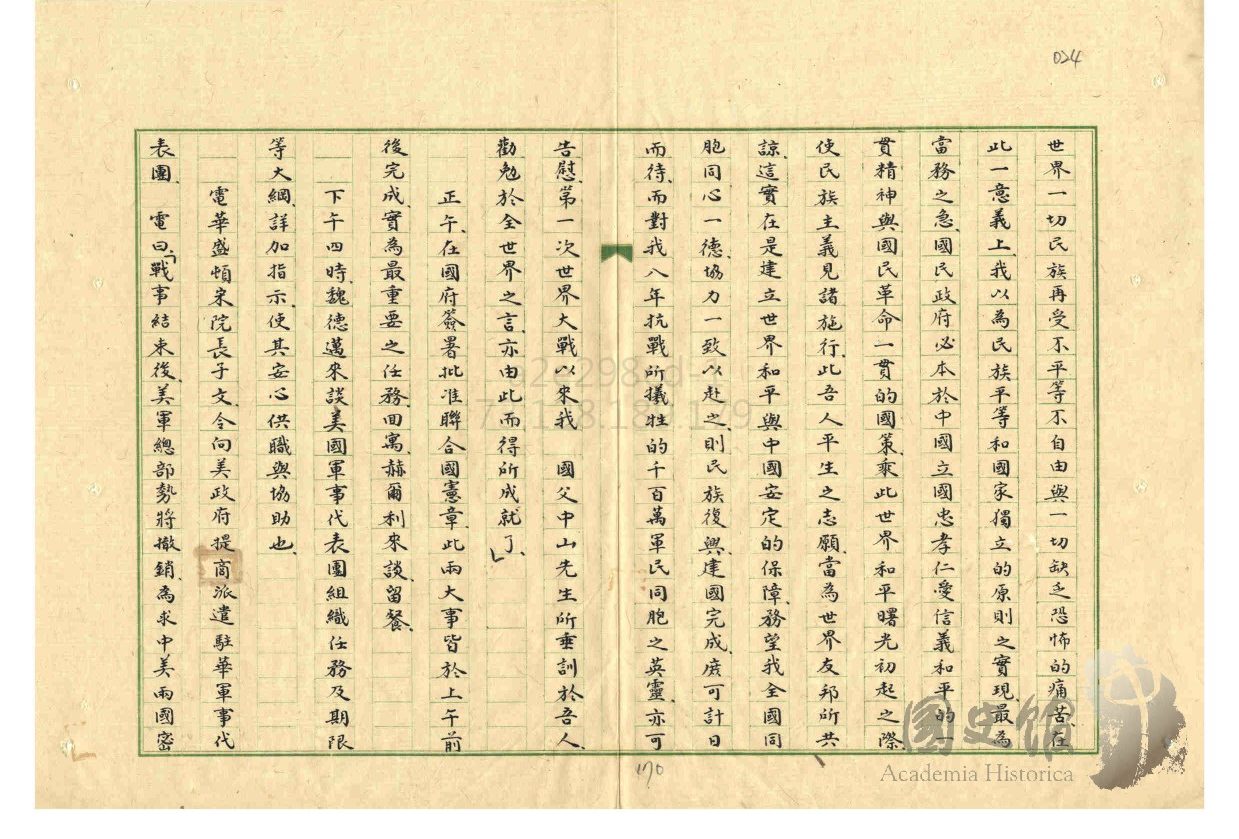 024
世界一切民族再受不平等不自由與一切缺乏恐怖的痛苦、在
此一意義上、我以為民族平等和國家獨立的原則之實現、最為
當務之急、國民政府必本於中國立國忠孝仁愛信義和平的一
貫精神與國民革命一貫的國策、乘此世界和平曙光初起之際、
使民族主義見諸施行、此吾人平生之志願、當為世界友邦所共
諒、這實在是建立世界和平與中國安定的保障、務望我全國同
胞同心一德、協力一致以赴之、則民族復興、建國完成、庶可計日
而待、而對我八年抗戰所犧牲的千百萬軍民同胞之英靈、亦可
告慰、第一次世界大戰以來我　國父中山先生所垂訓於吾人、
勸勉於全世界之言、亦由此而得所成就了、」
正午、在國府簽署批准聯合國憲章、此兩大事皆於上午前
後完成、實為最重要之任務、回寓、赫爾利來談、留餐、
下午四時、魏德邁來談美國軍事代表團組織任務及期限
等大綱、詳加指示、使其安心供職與協助也、
電華盛頓宋院長子文、令向美政府提商派遣駐華軍事代
表團、　電曰、「戰事結束後、美軍總部勢將撤銷、為求中美兩國密
170
國史館
Academia Historica